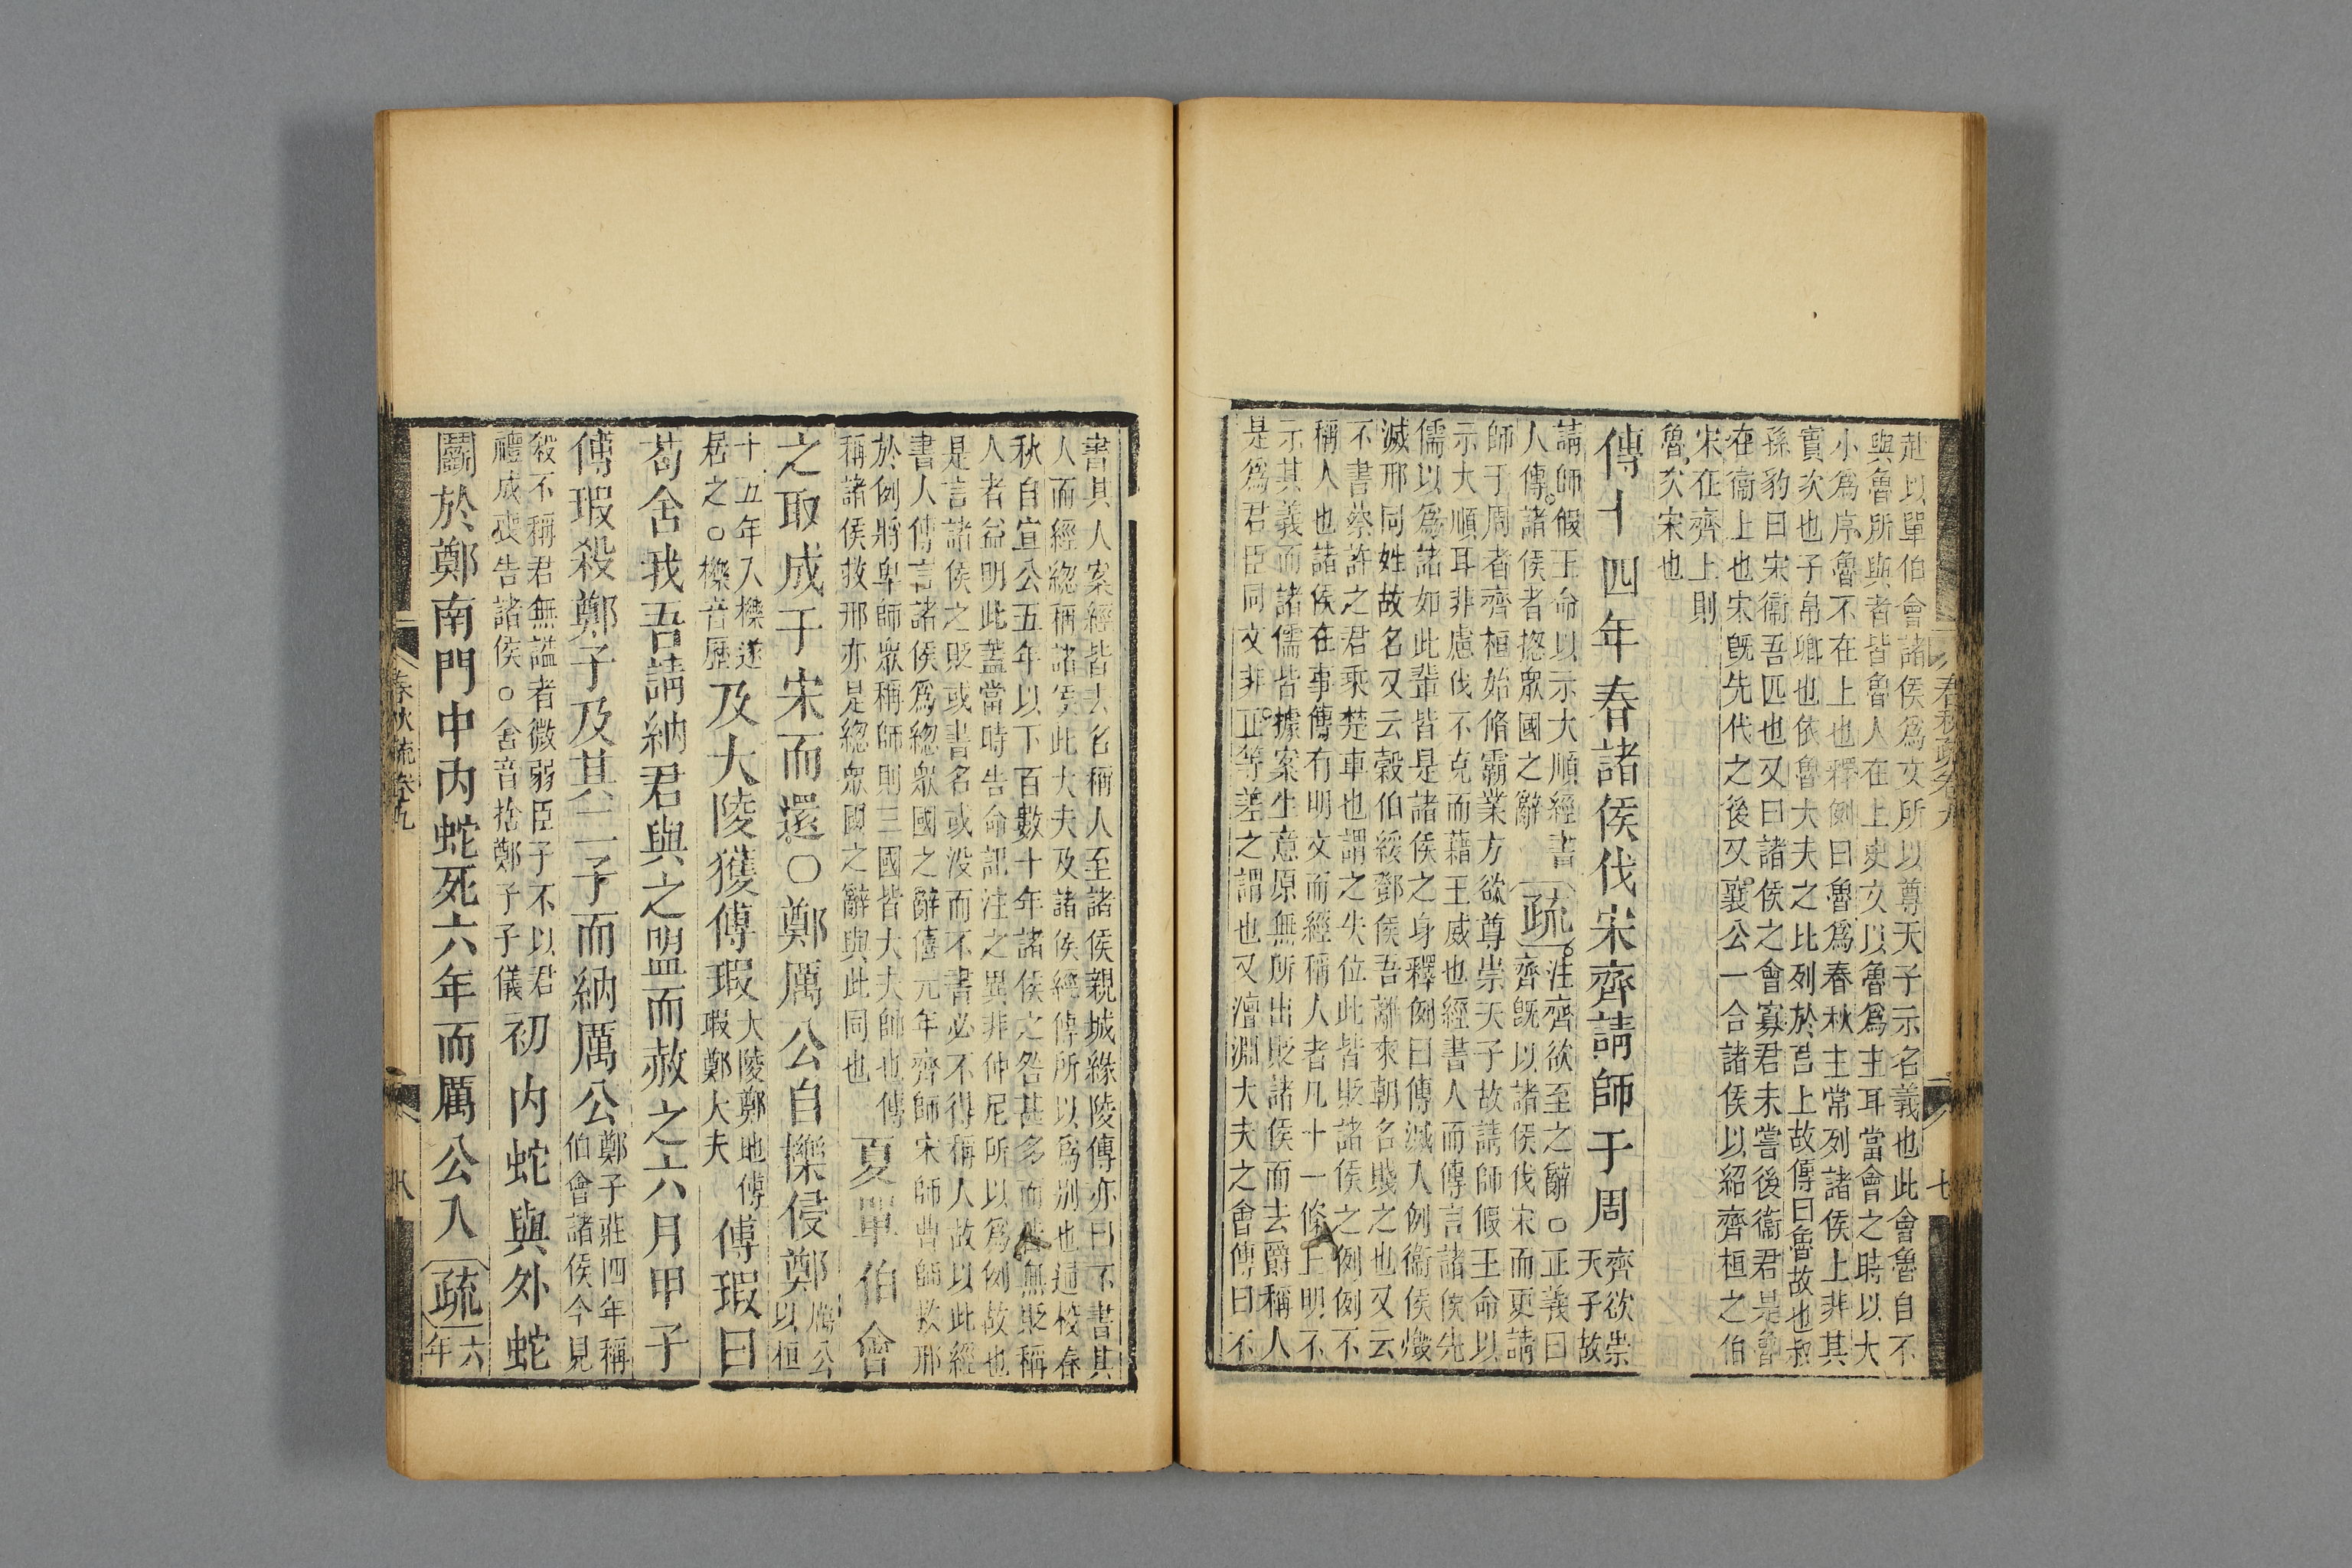 赴以單伯會諸侯爲文所以尊天子示名義也此會魯自不
與魯所與者皆魯人在上史文以魯爲主耳當會之時以大
小爲序魯不在上也釋例曰魯爲春秋主常列諸侯上非其
實次也子帛鄫也依魯大夫之比列於莒上故傳曰魯故也叔
孫豹曰宋衞吾匹也又曰諸侯之會寡君未嘗後衞君是魯
在衞上也宋旣先代之後又襄公一合諸侯以紹齊桓之伯
宋在齊上則
魯次宋也
傳十四年春諸侯伐宋齊請師于周
齊欲崇
天子故
請師假王命以示大順經書
人傳諸侯者揔衆國之辭
疏
注齊欲至之辭○正義曰
齊旣以諸侯伐宋而更請
師于周者齊桓始脩霸業方欲尊崇天子故請師假王命以
示大順耳非慮伐不克而藉王威也經書人而傳言諸侯先
儒以爲諸如此輩皆是諸侯之身釋例曰傳滅人例衞侯燬
滅邢同姓故名又云穀伯綏鄧侯吾離來朝名賤之也又云
不書蔡許之君乘楚車也謂之失位此皆貶諸侯之例例不
稱人也諸侯在事傳有明文而經稱人者凡十一條上明不
示其義而諸儒皆據案生意原無所出貶諸侯而去爵稱人
是爲君臣同文非正等差之謂也又澶淵大夫之會傳曰不
書其人案經皆去名稱人至諸侯親城緣陵傳亦曰不書其
人而經總稱諸侯此大夫及諸侯經傳所以爲別也通校春
秋自宣公五年以下百數十年諸侯之咎甚多而皆無貶稱
人者益明此蓋當時告命記注之異非仲尼所以爲例故也
是言諸侯之貶或書名或没而不書必不得稱人故以此經
書人傳言諸侯爲總衆國之辭僖元年齊師宋師曹師救邢
於例將卑師衆稱師則三國皆大夫師也傳
稱諸侯救邢亦是總衆國之辭與此同也
夏單伯會
之取成于宋而還○鄭厲公自櫟侵鄭
厲公
以桓
十五年入櫟遂
居之○櫟音歷
及大陵獲傅瑕
大陵鄭地傅
瑕鄭大夫
傅瑕曰
苟舍我吾請納君與之盟而赦之六月甲子
傅瑕殺鄭子及其二子而納厲公
鄭子莊四年稱
伯會諸侯今見
殺不稱君無謚者微弱臣子不以君
禮成喪告諸侯○舍音捨鄭子子儀
初内蛇與外蛇
鬬於鄭南門中内蛇死六年而厲公入
疏
六
年
春秋疏卷九
八
春秋疏卷九
七